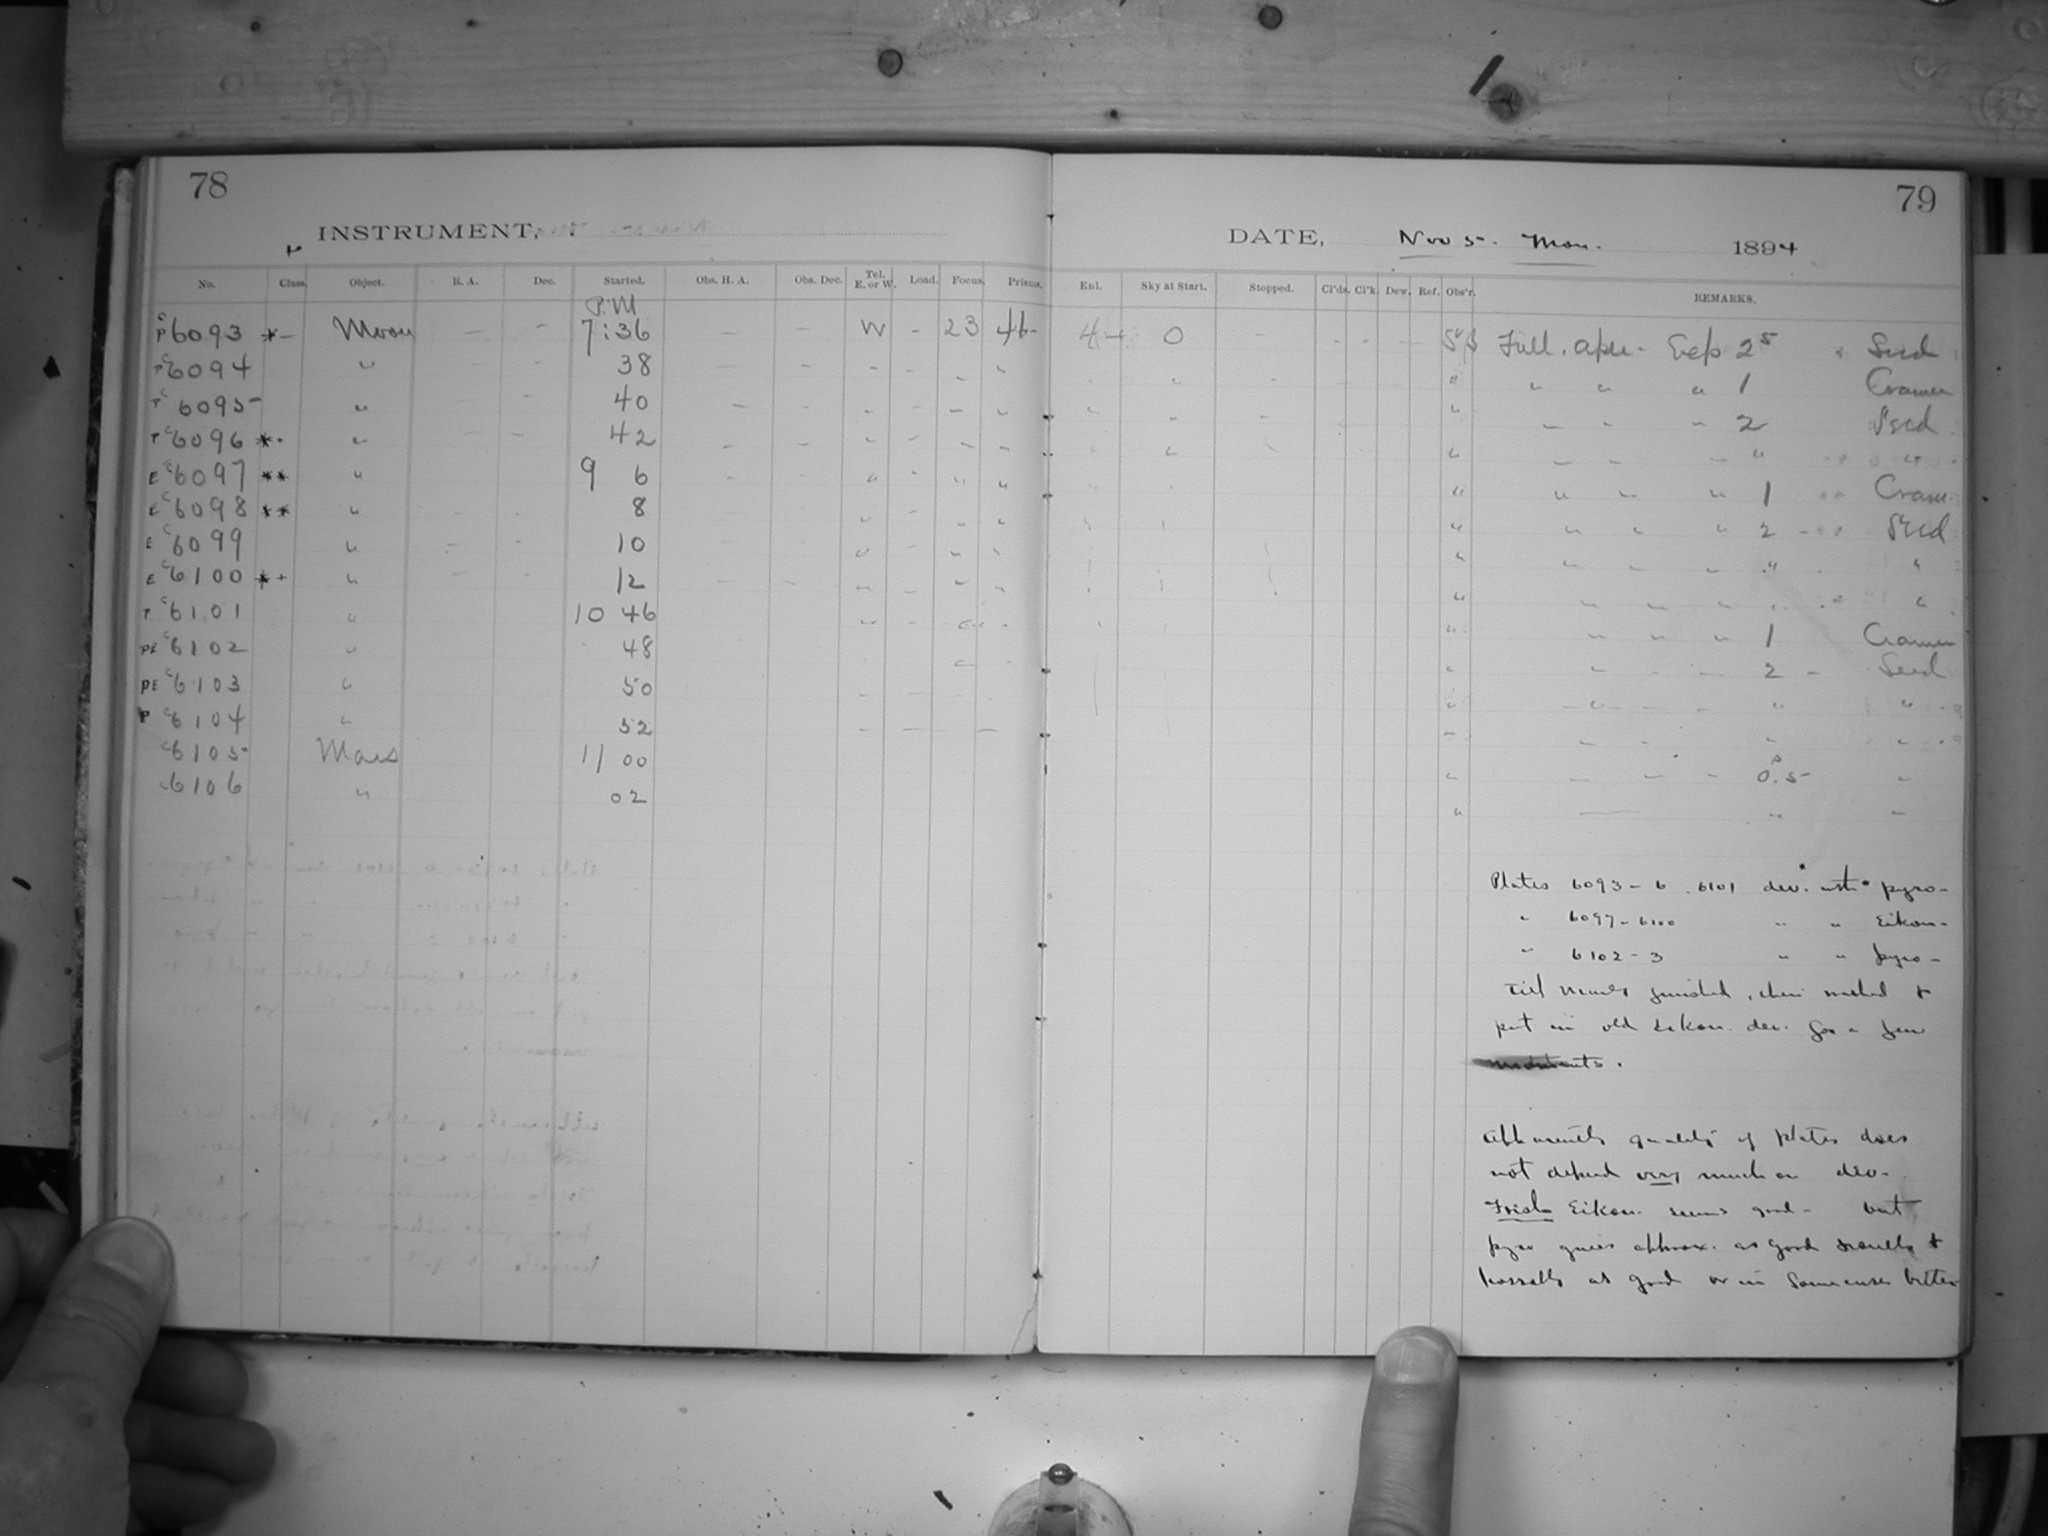 78
79
INSTRUMENT,
DATE, Nov 5. Mon. 1894
No. Class. Object. R. A. Dec. Started. Obs. H. A. Obs. Dec. Tel. E. or W. Load. Focus. Prisms. Enl. Sky at Start. Stopped. Cl'ds. Cl'k. Dew. Ref. Obs'r. REMARKS.
P.M
P C 6093 *- Moon — - 7:36 — - W - 23 46- 4- 0 - - - — Full. aper. Exp 2s Seed
C 6094 " 38 " " " " 1 Cramer
P C 6095 " 40 " - - " 2 Seed
P C 6096 *. " 42 " — - - " "
E C 6097 ** " 9 6 " " " " 1 Cram.
E C 6098 ** " 8 " " " " 2 Seed
E C 6099 " 10 " " - - " "
E C 6100 *+ " 12 " " " " "
P C 6101 " 10 46 " " " " 1 Cramer
PE C 6102 " 48 " - - - 2 Seed
PE C 6103 " 50 " - - - " "
P C 6104 " 52 " - - - " "
C 6105 Mars 11 00 " - - - 0.5 "
C 6106 " 02 " — " "
Plates 6093-6 . 6101 dev. with pyro-
" 6097-6100 " " Eikon-
" 6102-3 " " pyro-
till nearly finished, then washed &
put in old eikon. dev. for a few
moments.
Apparently quality of plates does
not depend very much on dev.
Fresh Eikon. seems good- but
pyro gives approx. as good results &
possibly as good or in some cases better